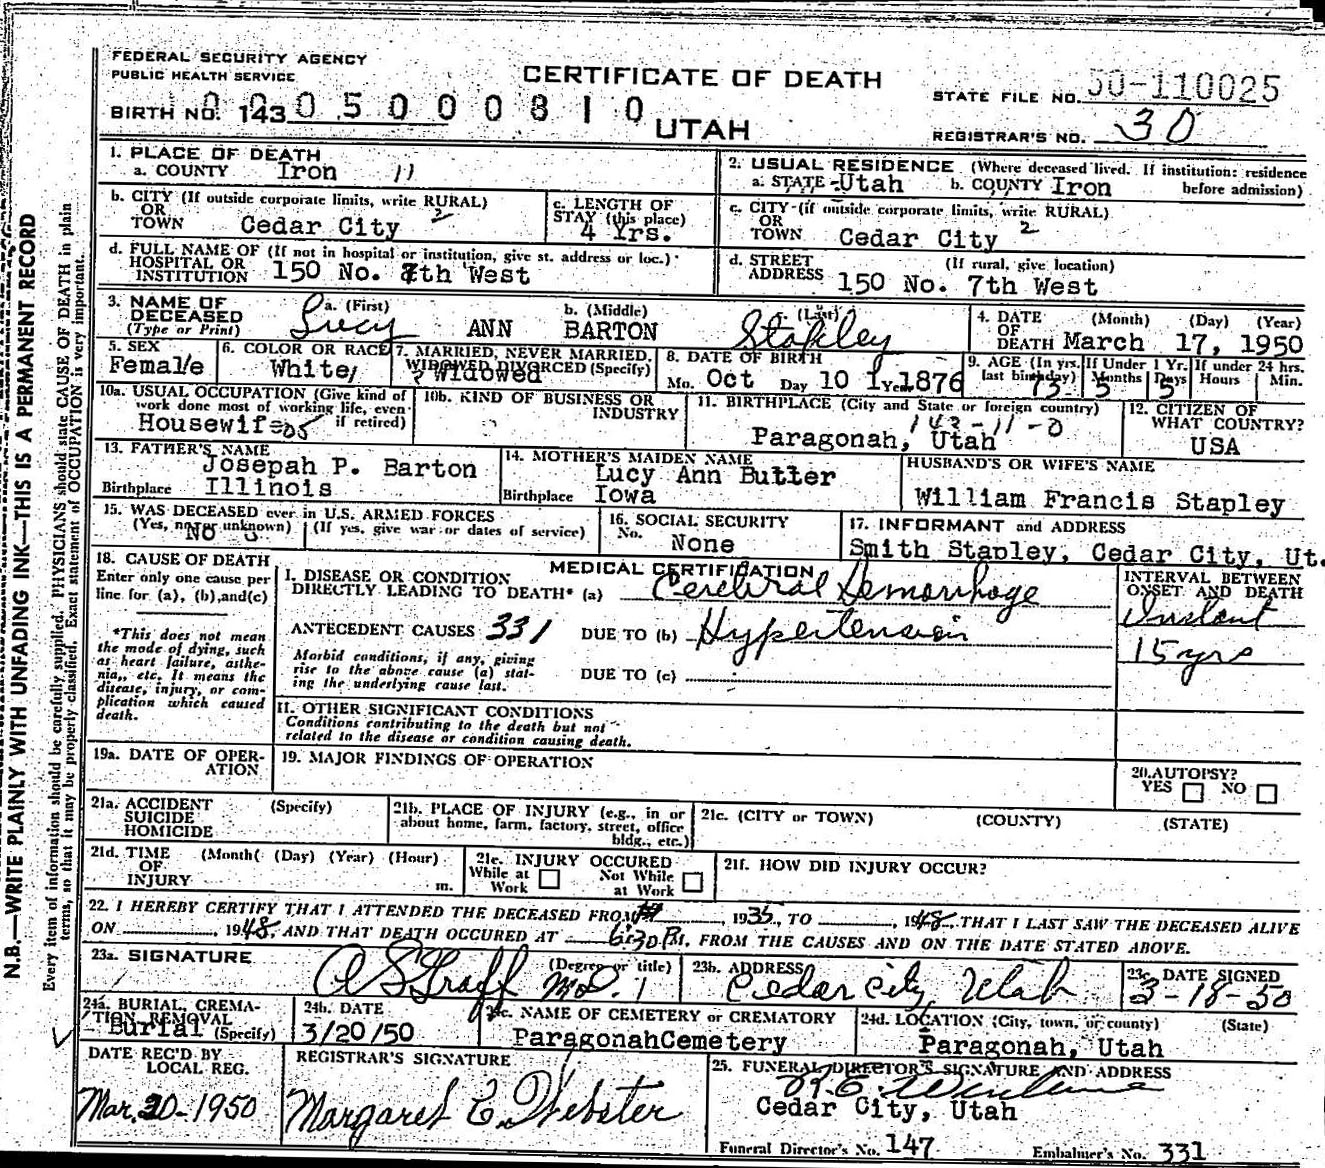 FEDERAL SECURITY AGENCY
PUBLIC HEALTH SERVICE
CERTIFICATE OF DEATH
UTAH
STATE FILE NO. 50-110025
BIRTH NO. 143 0 0 0 5 0 0 0 8 1 0
REGISTRAR'S NO. 30
1. PLACE OF DEATH
a. COUNTY Iron 11
2. USUAL RESIDENCE (Where deceased lived. If institution: residence before admission)
a. STATE -Utah b. COUNTY Iron
b. CITY (If outside corporate limits, write RURAL)
OR
TOWN Cedar City 2
c. LENGTH OF
STAY (this place)
4 Yrs.
c. CITY (if outside corporate limits, write RURAL)
OR
TOWN Cedar City 2
d. FULL NAME OF (If not in hospital or institution, give st. address or loc.)
HOSPITAL OR
INSTITUTION 150 No. 7th West
d. STREET (If rural, give location)
ADDRESS 150 No. 7th West
3. NAME OF
DECEASED
(Type or Print)
a. (First) b. (Middle) (Last)
Lucy ANN BARTON Stapley
4. DATE (Month) (Day) (Year)
OF
DEATH March 17, 1950
5. SEX
Female
6. COLOR OR RACE
White
7. MARRIED, NEVER MARRIED,
WIDOWED DIVORCED (Specify)
Widowed
8. DATE OF BIRTH
Mo. Oct Day 10 Year 1876
9. AGE (In yrs. last birthday) 73
If Under 1 Yr. Months 5 Days 5
If under 24 hrs. Hours Min.
10a. USUAL OCCUPATION (Give kind of
work done most of working life, even
if retired)
Housewife
10b. KIND OF BUSINESS OR
INDUSTRY
11. BIRTHPLACE (City and State or foreign country)
143-11-0
Paragonah, Utah
12. CITIZEN OF
WHAT COUNTRY?
USA
13. FATHER'S NAME
Josepah P. Barton
Birthplace Illinois
14. MOTHER'S MAIDEN NAME
Lucy Ann Butler
Birthplace Iowa
HUSBAND'S OR WIFE'S NAME
William Francis Stapley
15. WAS DECEASED ever in U.S. ARMED FORCES
(Yes, no, or unknown) (If yes, give war or dates of service)
No
16. SOCIAL SECURITY
No. None
17. INFORMANT and ADDRESS
Smith Stapley, Cedar City, Ut.
18. CAUSE OF DEATH
Enter only one cause per
line for (a), (b), and (c)
MEDICAL CERTIFICATION
I. DISEASE OR CONDITION
DIRECTLY LEADING TO DEATH* (a) Cerebral Hemorrhage
INTERVAL BETWEEN
ONSET AND DEATH
Instant
*This does not mean
the mode of dying, such
as heart failure, asthe-
nia, etc. It means the
disease, injury, or com-
plication which caused
death.
ANTECEDENT CAUSES 331 DUE TO (b) Hypertension
15 yrs
Morbid conditions, if any, giving
rise to the above cause (a) stat-
ing the underlying cause last.
DUE TO (c)
II. OTHER SIGNIFICANT CONDITIONS
Conditions contributing to the death but not
related to the disease or condition causing death.
19a. DATE OF OPER-
ATION
19. MAJOR FINDINGS OF OPERATION
20. AUTOPSY?
YES NO
21a. ACCIDENT (Specify)
SUICIDE
HOMICIDE
21b. PLACE OF INJURY (e.g., in or
about home, farm, factory, street, office
bldg., etc.)
21c. (CITY or TOWN) (COUNTY) (STATE)
21d. TIME (Month) (Day) (Year) (Hour)
OF
INJURY m.
21e. INJURY OCCURED
While at Work Not While at Work
21f. HOW DID INJURY OCCUR?
22. I HEREBY CERTIFY THAT I ATTENDED THE DECEASED FROM 1935, TO 1948, THAT I LAST SAW THE DECEASED ALIVE
ON 1948, AND THAT DEATH OCCURED AT 6:30 P.M, FROM THE CAUSES AND ON THE DATE STATED ABOVE.
23a. SIGNATURE (Degree or title)
A S Graff M.D. 1
23b. ADDRESS
Cedar City, Utah
23c. DATE SIGNED
3-18-50
24a. BURIAL, CREMA-
TION, REMOVAL
Burial (Specify)
24b. DATE
3/20/50
24c. NAME OF CEMETERY or CREMATORY
ParagonahCemetery
24d. LOCATION (City, town, or county) (State)
Paragonah, Utah
DATE REC'D BY
LOCAL REG.
Mar. 20-1950
REGISTRAR'S SIGNATURE
Margaret E. Webster
25. FUNERAL DIRECTOR'S SIGNATURE AND ADDRESS
Cedar City, Utah
Funeral Director's No. 147 Embalmer's No. 331
N.B.—WRITE PLAINLY WITH UNFADING INK—THIS IS A PERMANENT RECORD
Every item of information should be carefully supplied. PHYSICIANS should state CAUSE OF DEATH in plain
terms, so that it may be properly classified. Exact statement of OCCUPATION is very important.